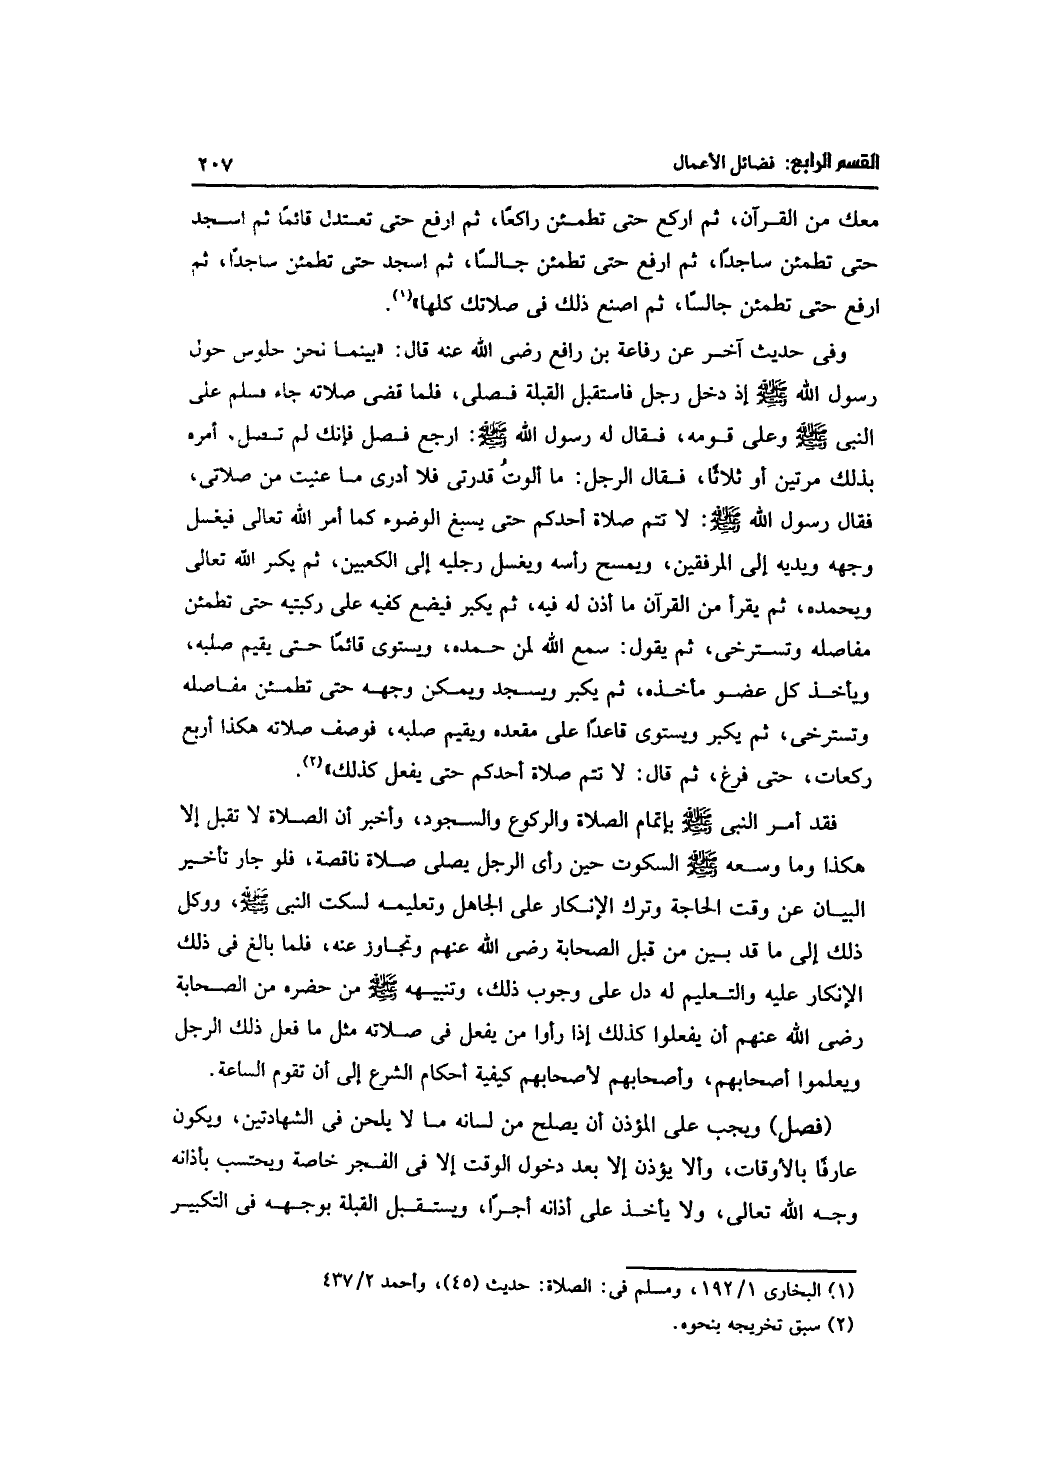 القسم الرابع: فضائل الأعمال ٢٠٧
معك من القرآن، ثم اركع حتى تطمئن راكعًا، ثم ارفع حتى تعتدل قائمًا ثم اسجد
حتى تطمئن ساجدًا، ثم ارفع حتى تطمئن جالسًا، ثم اسجد حتى تطمئن ساجدًا، ثم
ارفع حتى تطمئن جالسًا، ثم اصنع ذلك فى صلاتك كلها»(١).
وفى حديث آخر عن رفاعة بن رافع رضى الله عنه قال: «بينما نحن حلوس حول
رسول الله ﷺ إذ دخل رجل فاستقبل القبلة فصلى، فلما قضى صلاته جاء فسلم على
النبى ﷺ وعلى قومه، فقال له رسول الله ﷺ: ارجع فصل فإنك لم تصل. أمره
بذلك مرتين أو ثلاثًا، فقال الرجل: ما ألوتُ قدرتى فلا أدرى ما عنيت من صلاتى،
فقال رسول الله ﷺ: لا تتم صلاة أحدكم حتى يسبغ الوضوء كما أمر الله تعالى فيغسل
وجهه ويديه إلى المرفقين، ويمسح رأسه ويغسل رجليه إلى الكعبين، ثم يكبر الله تعالى
ويحمده، ثم يقرأ من القرآن ما أذن له فيه، ثم يكبر فيضع كفيه على ركبتيه حتى تطمئن
مفاصله وتسترخى، ثم يقول: سمع الله لمن حمده، ويستوى قائمًا حتى يقيم صلبه،
ويأخذ كل عضو مأخذه، ثم يكبر ويسجد ويمكن وجهه حتى تطمئن مفاصله
وتسترخى، ثم يكبر ويستوى قاعدًا على مقعده ويقيم صلبه، فوصف صلاته هكذا أربع
ركعات، حتى فرغ، ثم قال: لا تتم صلاة أحدكم حتى يفعل كذلك»(٢).
فقد أمر النبى ﷺ بإتمام الصلاة والركوع والسجود، وأخبر أن الصلاة لا تقبل إلا
هكذا وما وسعه ﷺ السكوت حين رأى الرجل يصلى صلاة ناقصة، فلو جار تأخير
البيان عن وقت الحاجة وترك الإنكار على الجاهل وتعليمه لسكت النبى ﷺ، ووكل
ذلك إلى ما قد بين من قبل الصحابة رضى الله عنهم وتجاوز عنه، فلما بالغ فى ذلك
الإنكار عليه والتعليم له دل على وجوب ذلك، وتنبيهه ﷺ من حضره من الصحابة
رضى الله عنهم أن يفعلوا كذلك إذا رأوا من يفعل فى صلاته مثل ما فعل ذلك الرجل
ويعلموا أصحابهم، وأصحابهم لأصحابهم كيفية أحكام الشرع إلى أن تقوم الساعة.
(فصل) ويجب على المؤذن أن يصلح من لسانه ما لا يلحن فى الشهادتين، ويكون
عارفًا بالأوقات، وألا يؤذن إلا بعد دخول الوقت إلا فى الفجر خاصة ويحتسب بأذانه
وجه الله تعالى، ولا يأخذ على أذانه أجرًا، ويستقبل القبلة بوجهه فى التكبير
(١) البخارى ١/ ١٩٢، ومسلم فى: الصلاة: حديث (٤٥)، وأحمد ٢/ ٤٣٧
(٢) سبق تخريجه بنحوه.